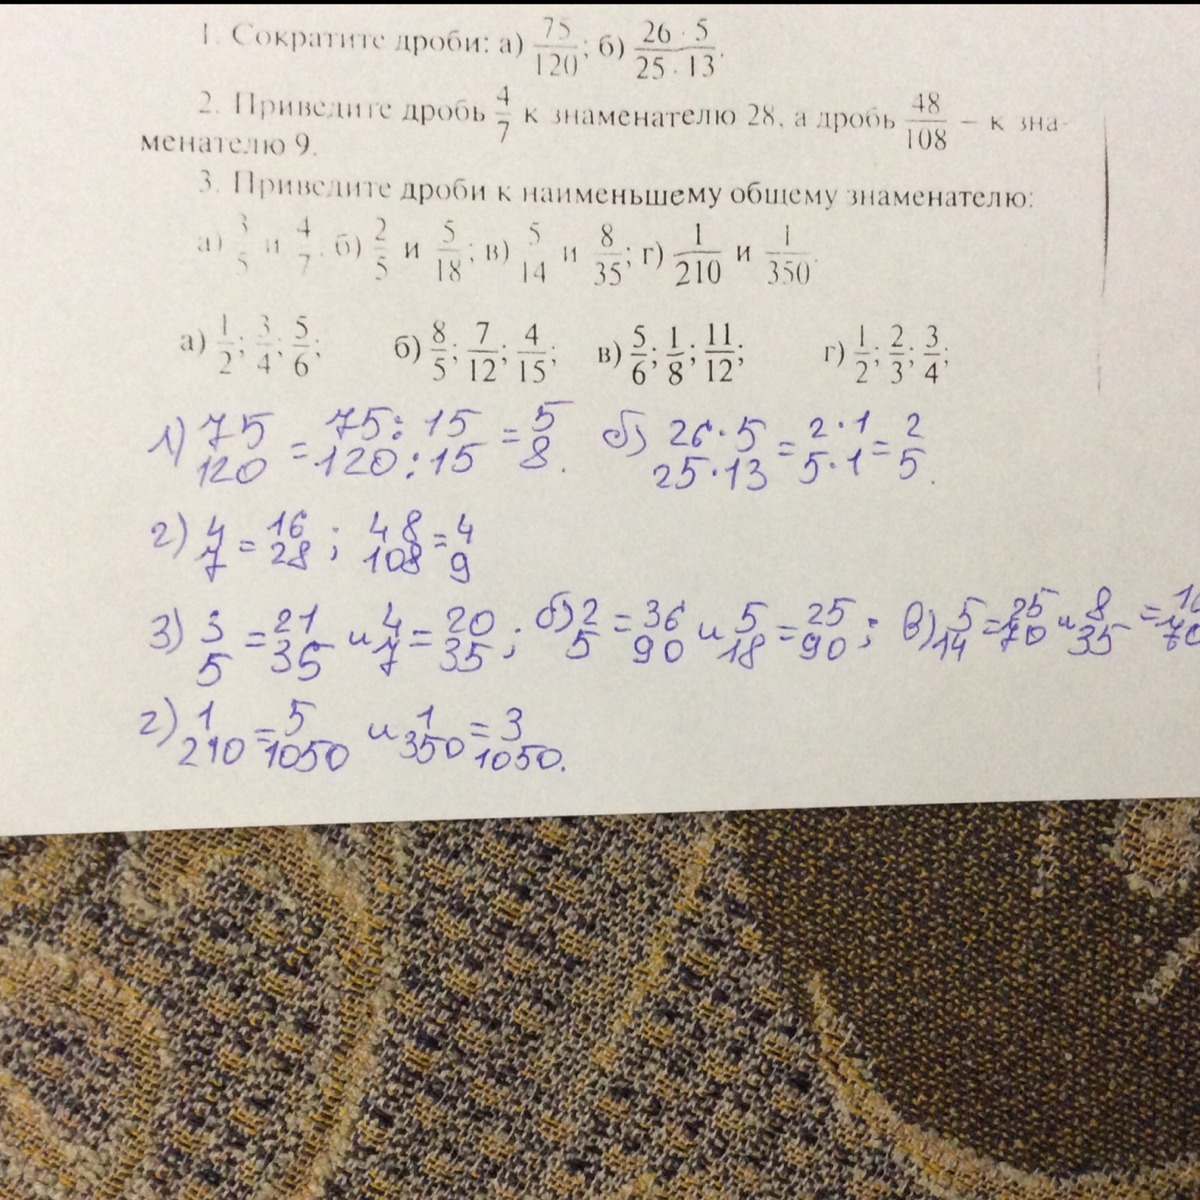 1. Сократите дроби: а) 75/120; б) 26 · 5/25 · 13.
2. Приведите дробь 4/7 к знаменателю 28, а дробь 48/108 – к зна-
менателю 9.
3. Приведите дроби к наименьшему общему знаменателю:
а) 3/5 и 4/7. б) 2/5 и 5/18; в) 5/14 и 8/35; г) 1/210 и 1/350.
а) 1/2; 3/4; 5/6; б) 8/5; 7/12; 4/15; в) 5/6; 1/8; 11/12; г) 1/2; 2/3; 3/4;
1) 75/120 = 75:15/120:15 = 5/8. б) 26·5/25·13 = 2·1/5·1 = 2/5.
2) 4/7 = 16/28; 48/108 = 4/9
3) 3/5 = 21/35 и 4/7 = 20/35; б) 2/5 = 36/90 и 5/18 = 25/90; в) 5/14 = 25/70 и 8/35 = 16/70
г) 1/210 = 5/1050 и 1/350 = 3/1050.